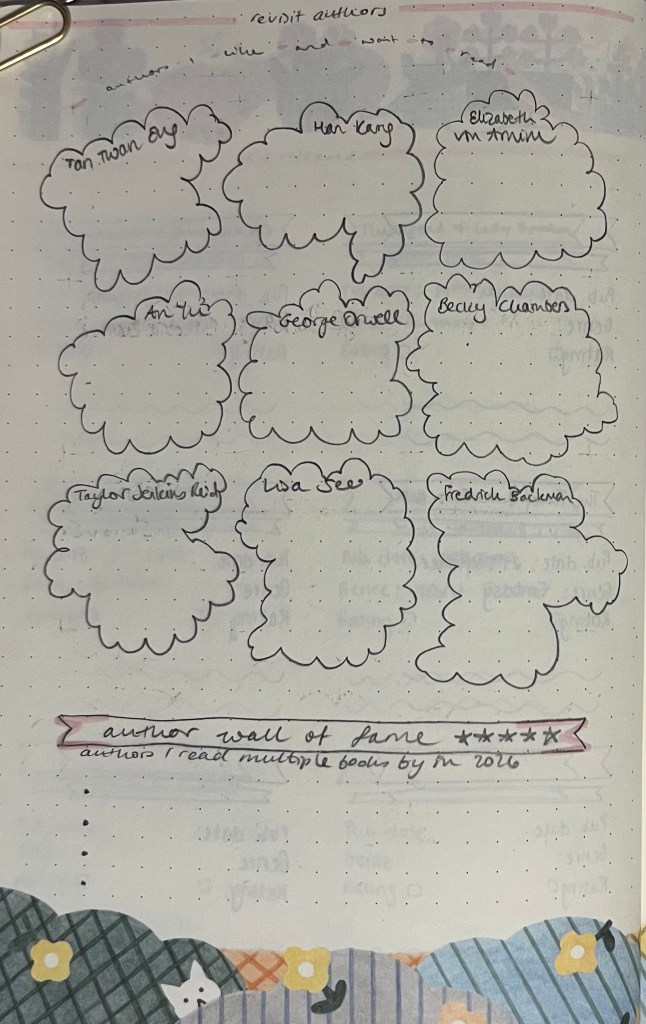 revisit authors
authors I like and want to read
Tan Twan Eng
Han Kang
Elizabeth
von Arnim
An Yu
George Orwell
Becky Chambers
Taylor Jenkins Reid
Lisa See
Fredrick Backman
author wall of fame ★★★★★
authors I read multiple books by in 2026